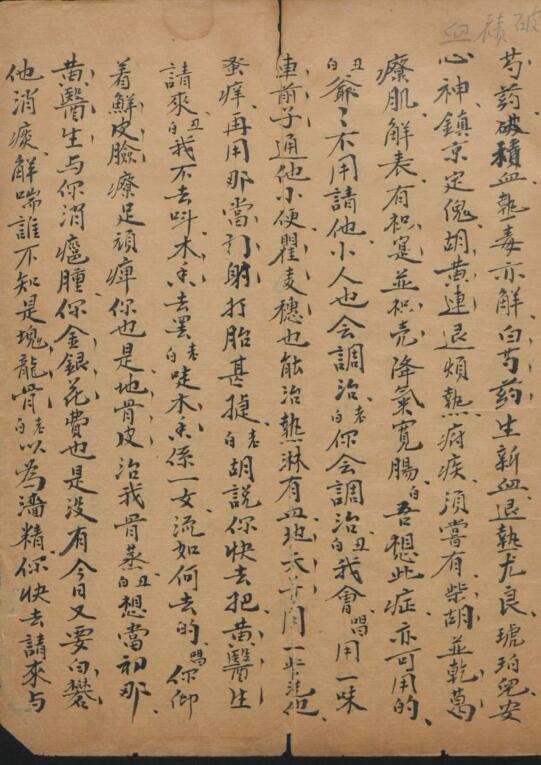 破積血
芍药破積血熱毒亦解白芍药生新血退熱尤良琥珀兒安
心神鎮京定傀胡黄連退煩熱疳疾須嘗有柴胡並乾葛
療肌解表有枳寔並枳壳降氣寬腸白吾想此症亦可用的
丑白爺〻不用請他小人也会調治老白你会調治丑白我會唱用一味
車前子通他小便瞿麦穗也能治熱淋有血地
蚤痒再用那當打胎甚捷老白胡說你快去把黄醫生
請來丑白我不去呌木香去罢老白唗木香係一女流如何去的唱你仰
着鮮皮臉療足頑痺你也是地骨皮治我骨蒸丑白想當初那
黄醫生与你消癍腫你金銀花費也是没有今日又要白礬
他消痰解喘誰不知是塊龍骨老白以為濇精你快去請來与